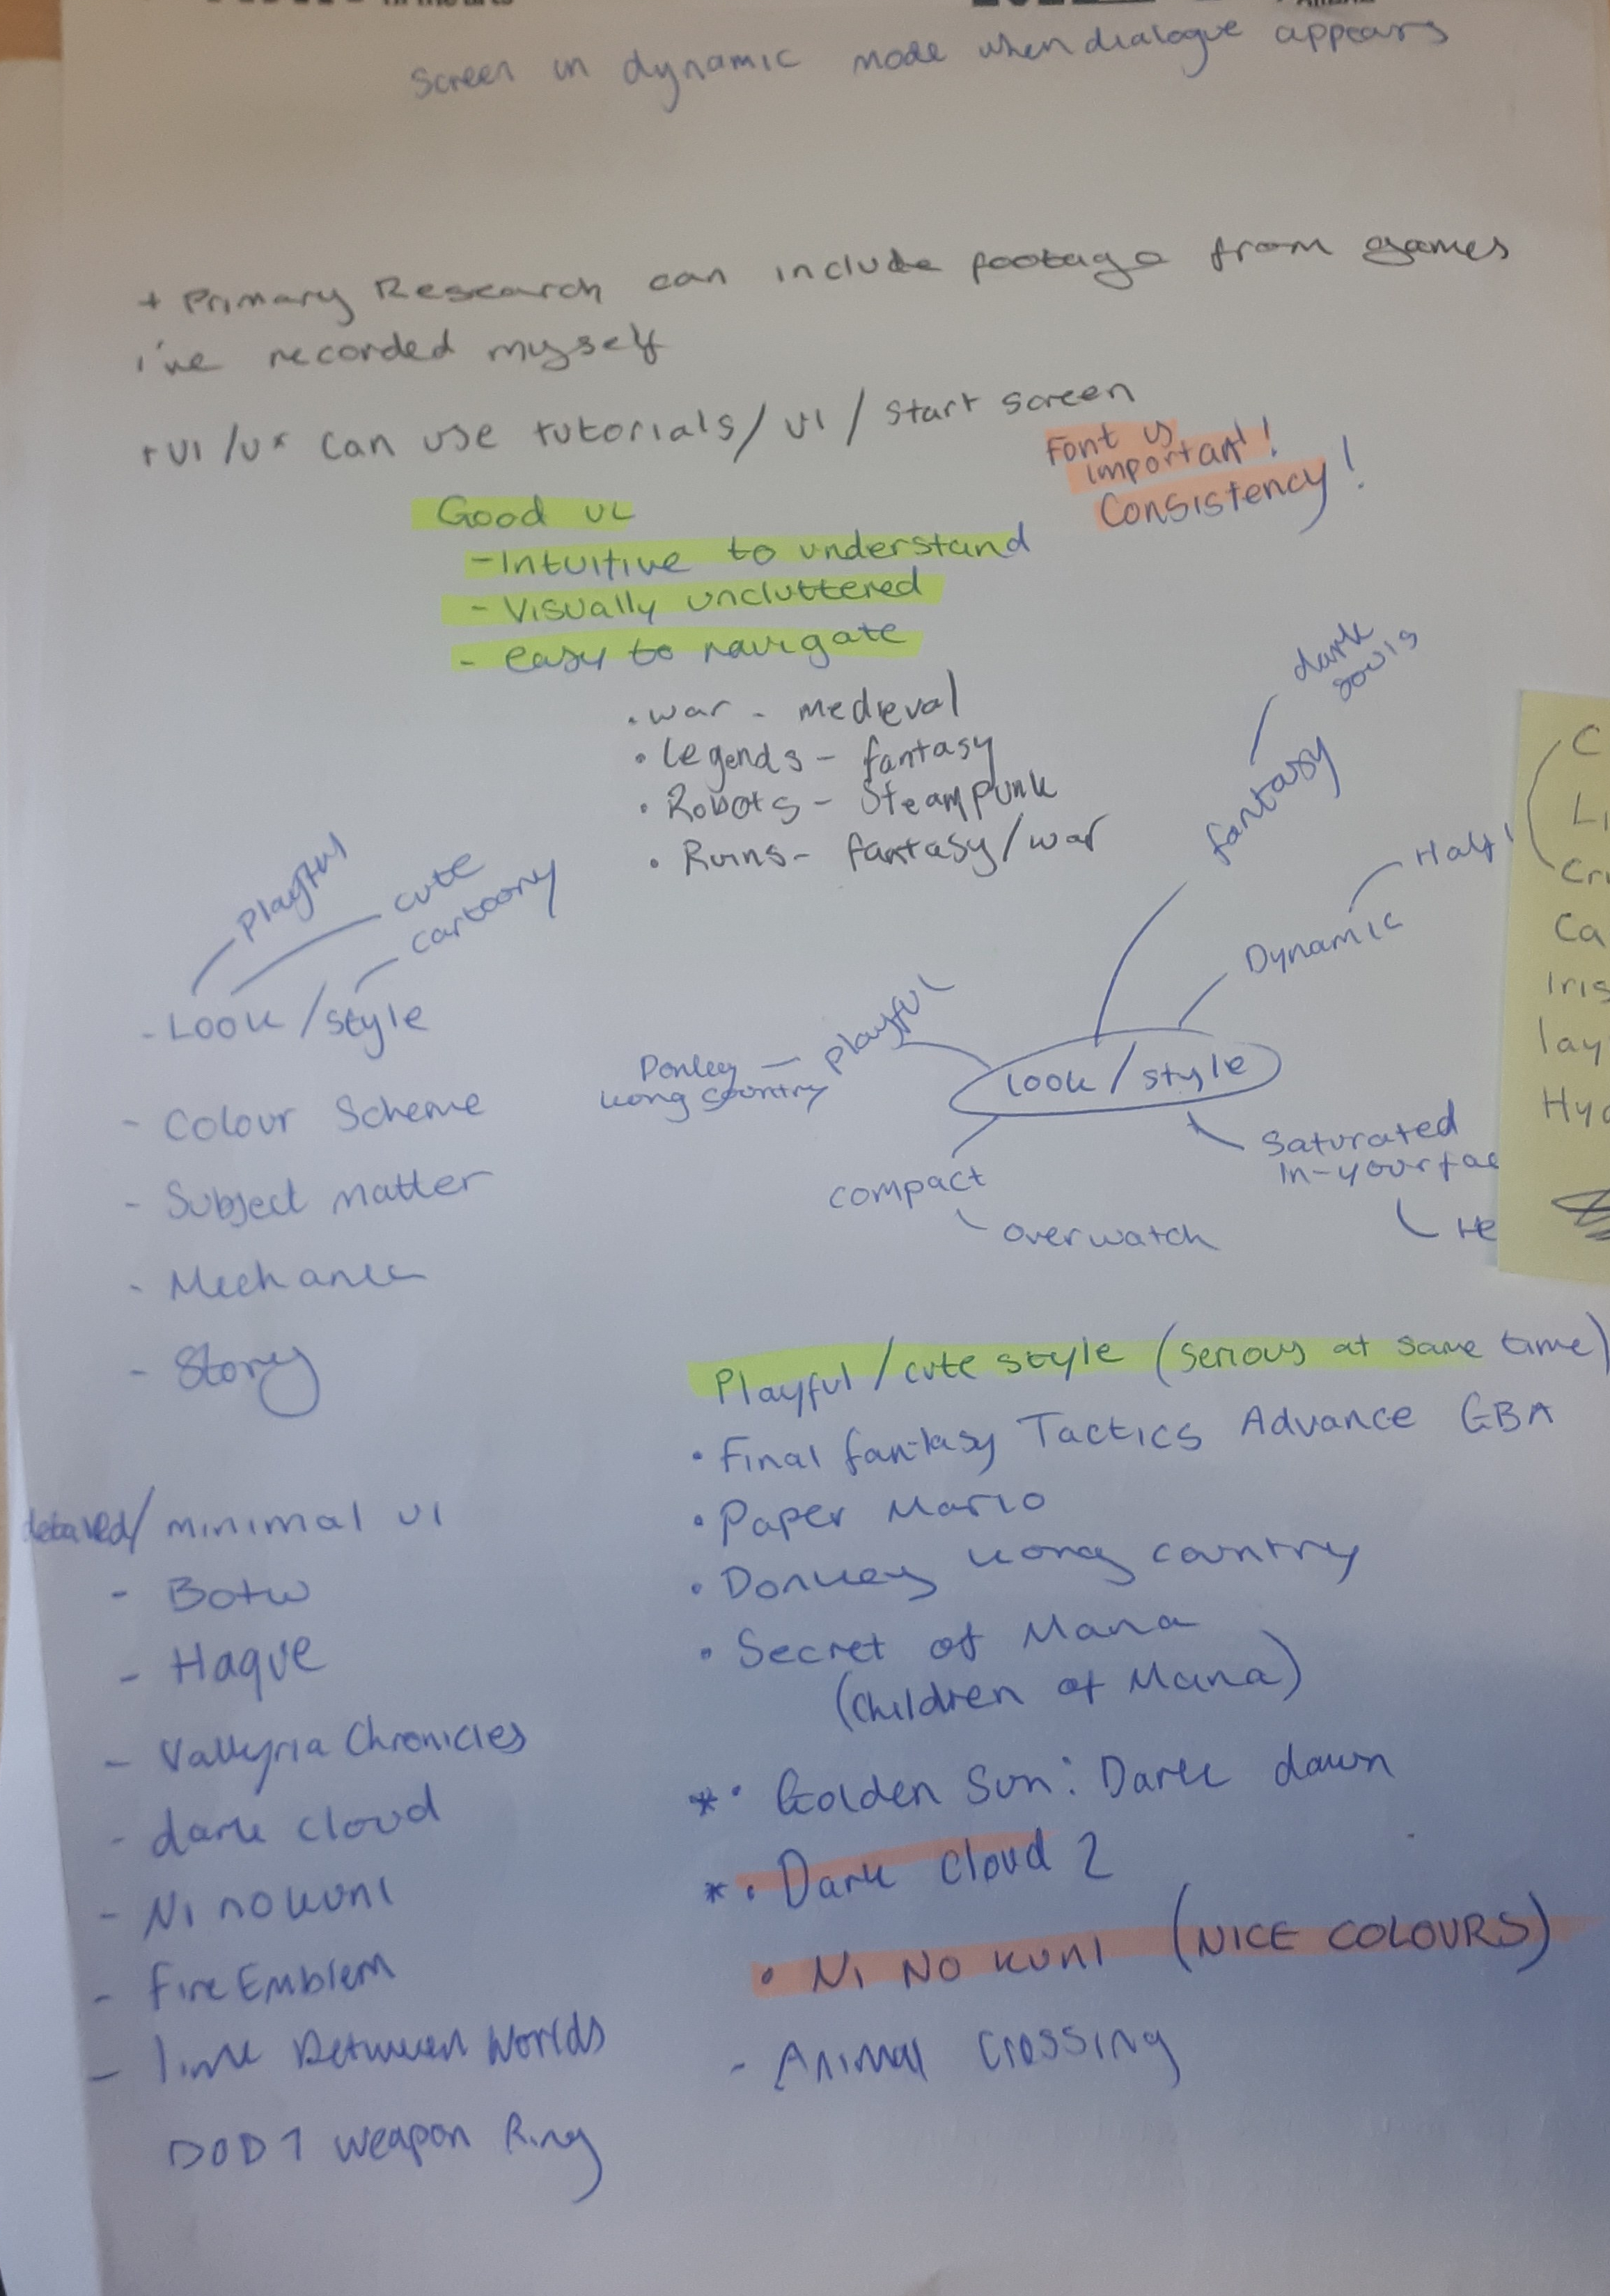 screen in dynamic mode when dialogue appears
+ Primary Research can include footage from games
i've recorded myself
+ UI/UX can use tutorials/ UI / start screen
Font is
important!
Consistency!
Good UI
- Intuitive to understand
- Visually uncluttered
- easy to navigate
dark
souls
• war - medieval
• Legends - fantasy
• Robots - Steampunk
• Ruins - fantasy/war
fantasy
Half
Dynamic
playful
cute
cartoony
- Look / style
playful
Donkey
Kong Country
look / style
- Colour Scheme
Saturated
In-your fac
- Subject matter
compact
overwatch
He
- Mechanic
- Story
C
Li
Cr
Ca
Iris
lay
Hyd
Playful / cute style (serious at same time)
• Final fantasy Tactics Advance GBA
• Paper Mario
• Donkey Kong country
• Secret of Mana
(Children of Mana)
* • Golden Sun: Dark dawn
* • Dark Cloud 2
• NI NO KUNI (NICE COLOURS)
- Animal Crossing
detailed/ minimal UI
- Botw
- Haque
- Valkyria Chronicles
- dark cloud
- Ni no kuni
- Fire Emblem
- link Between Worlds
DOD 1 weapon Ring